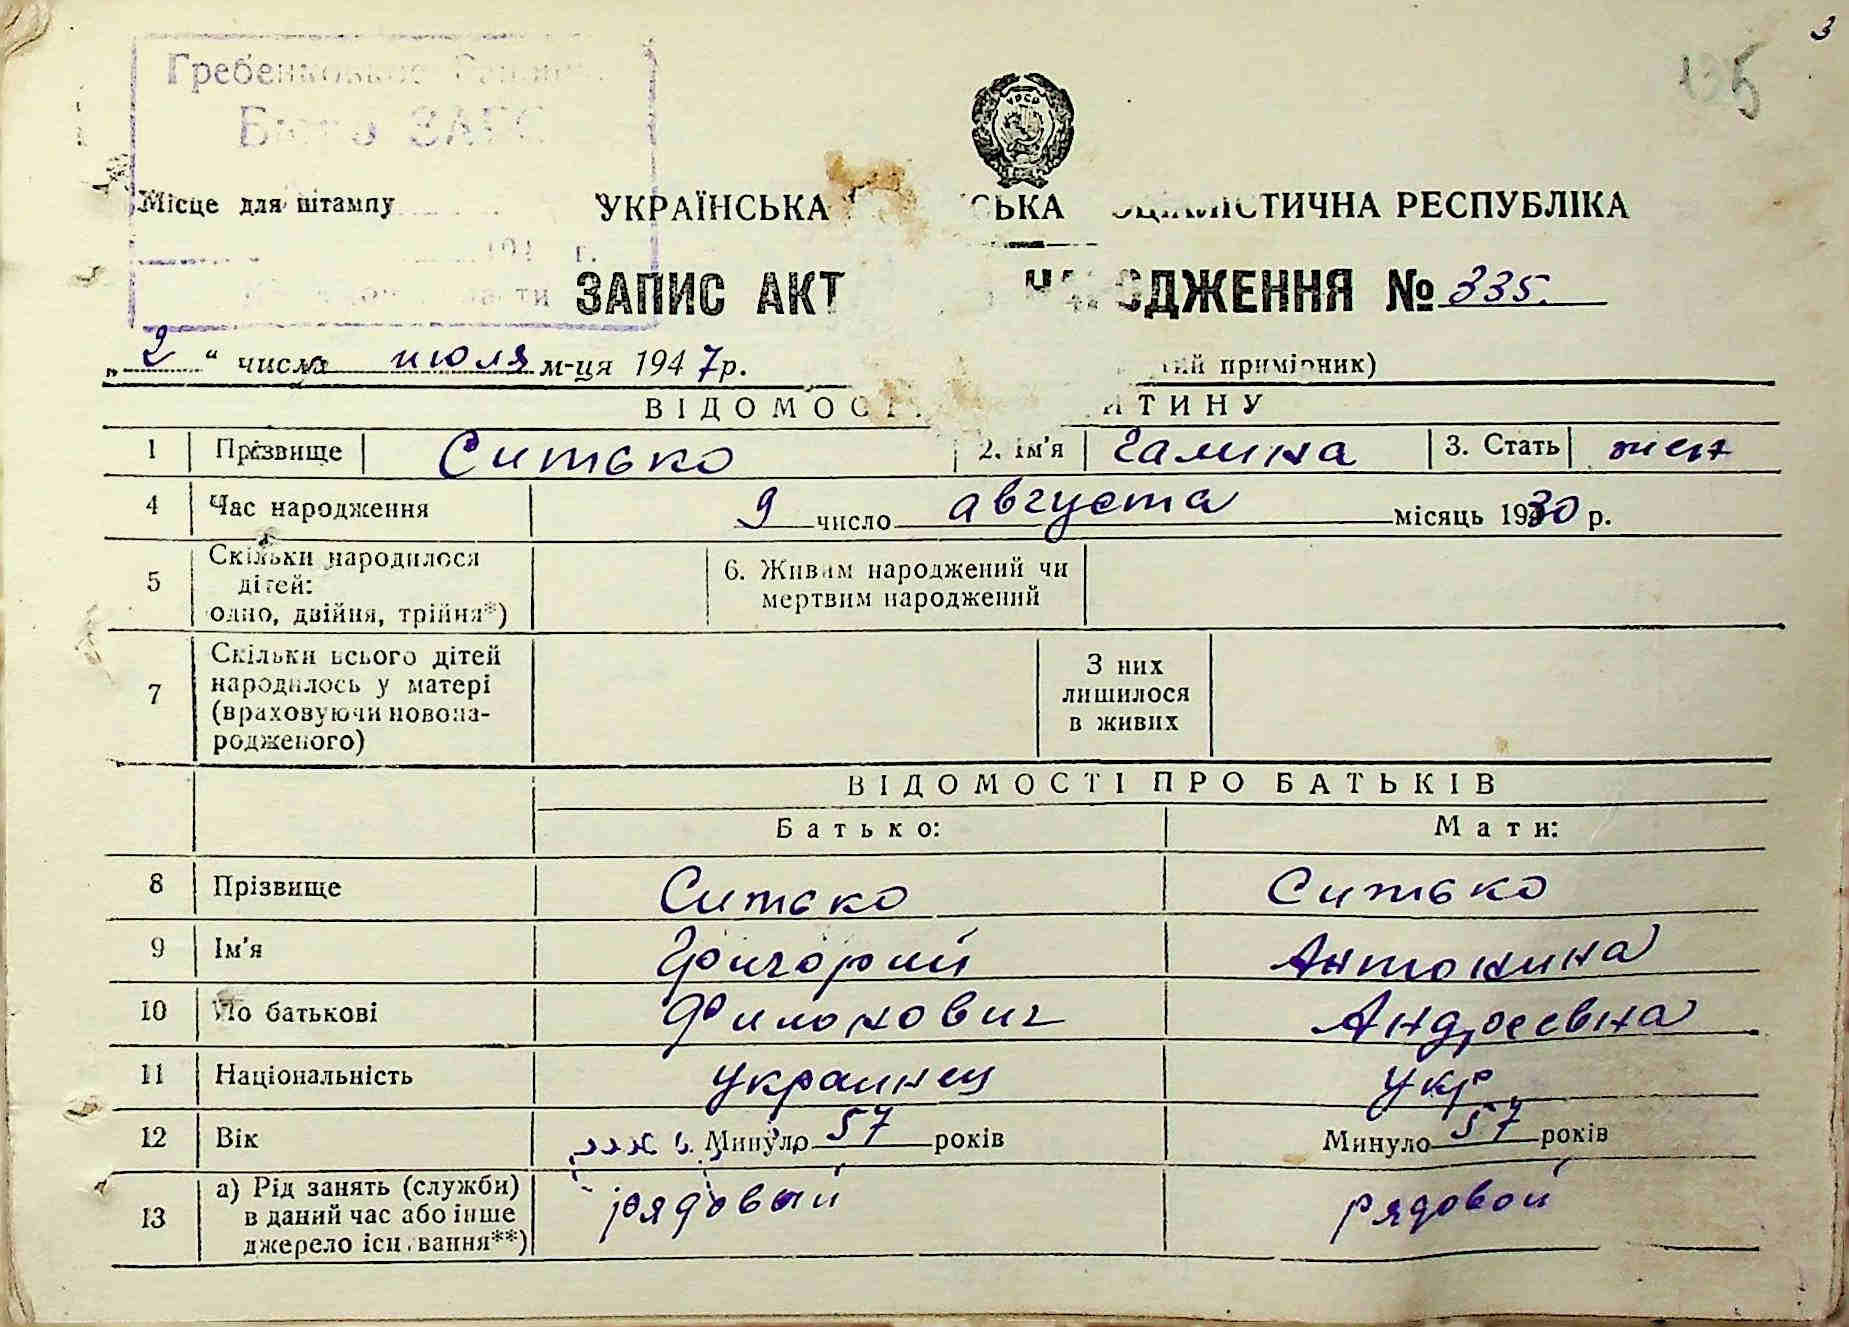 3
135
Бюро ЗАГС
УРСР
Місце для штампу
УКРАЇНСЬКА СЬКА СОЦІАЛІСТИЧНА РЕСПУБЛІКА
ЗАПИС АКТ НАРОДЖЕННЯ № 335.
„2“ числа июля м-ця 1947 р.
примірник)
ВІДОМОСТ ИТИНУ
1 Прізвище Ситько 2. Ім'я Галина 3. Стать жен
4 Час народження 9 число августа місяць 1930 р.
5 Скільки народилося дітей: одно, двійня, трійня*) 6. Живим народжений чи мертвим народжений
7 Скільки всього дітей народилось у матері (враховуючи новонародженого) З них лишилося в живих
ВІДОМОСТІ ПРО БАТЬКІВ
Батько: Мати:
8 Прізвище Ситько Ситько
9 Ім'я Григорий Антонина
10 По батькові Филонович Андреевна
11 Національність украинец укр
12 Вік Минуло 57 років Минуло 57 років
13 а) Рід занять (служби) в даний час або інше джерело існування**) рядовый рядовой